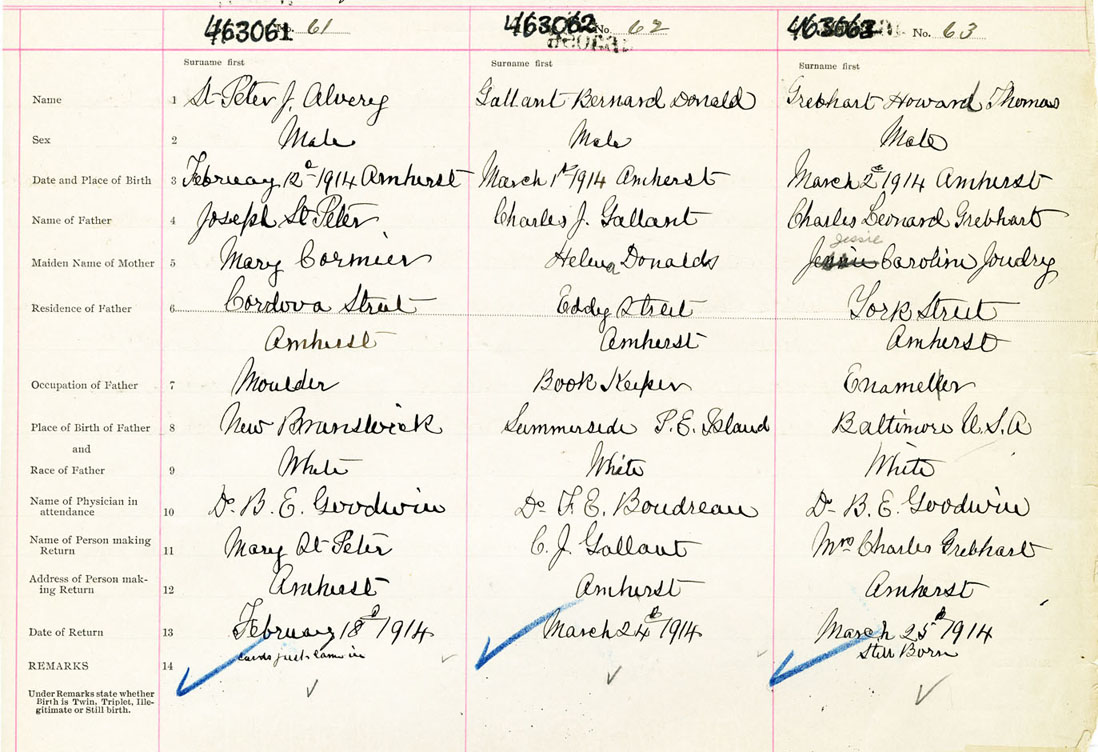 463061 No. 61 463062 No. 62 463063 No. 63
Surname first Surname first Surname first
Name 1 St Peter J. Alverey Gallant Bernard Donald Grebhart Howard Thomas
Sex 2 Male Male Male
Date and Place of Birth 3 February 12th 1914 Amherst March 1st 1914 Amherst March 2d 1914 Amherst
Name of Father 4 Joseph St Peter Charles J. Gallant Charles Leonard Grebhart
Jessie
Maiden Name of Mother 5 Mary Cormier Helena Donalds Caroline Joudrey
Residence of Father 6 Cordova Street Eddy Street York Street
Amherst Amherst Amherst
Occupation of Father 7 Moulder Book Keeper Enameller
Place of Birth of Father 8 New Brunswick Summerside P.E. Island Baltimore U.S.A
and
Race of Father 9 White White White
Name of Physician in
attendance 10 Dr. B. E. Goodwin Dr F. E. Boudreau Dr B. E. Goodwin
Name of Person making
Return 11 Mary St Peter C. J. Gallant Mrs Charles Grebhart
Address of Person mak-
ing Return 12 Amherst Amherst Amherst
Date of Return 13 February 18th 1914 March 24th 1914 March 25th 1914
REMARKS 14 cards just came in Still Born
Under Remarks state whether
Birth is Twin, Triplet, Ille-
gitimate or Still birth.